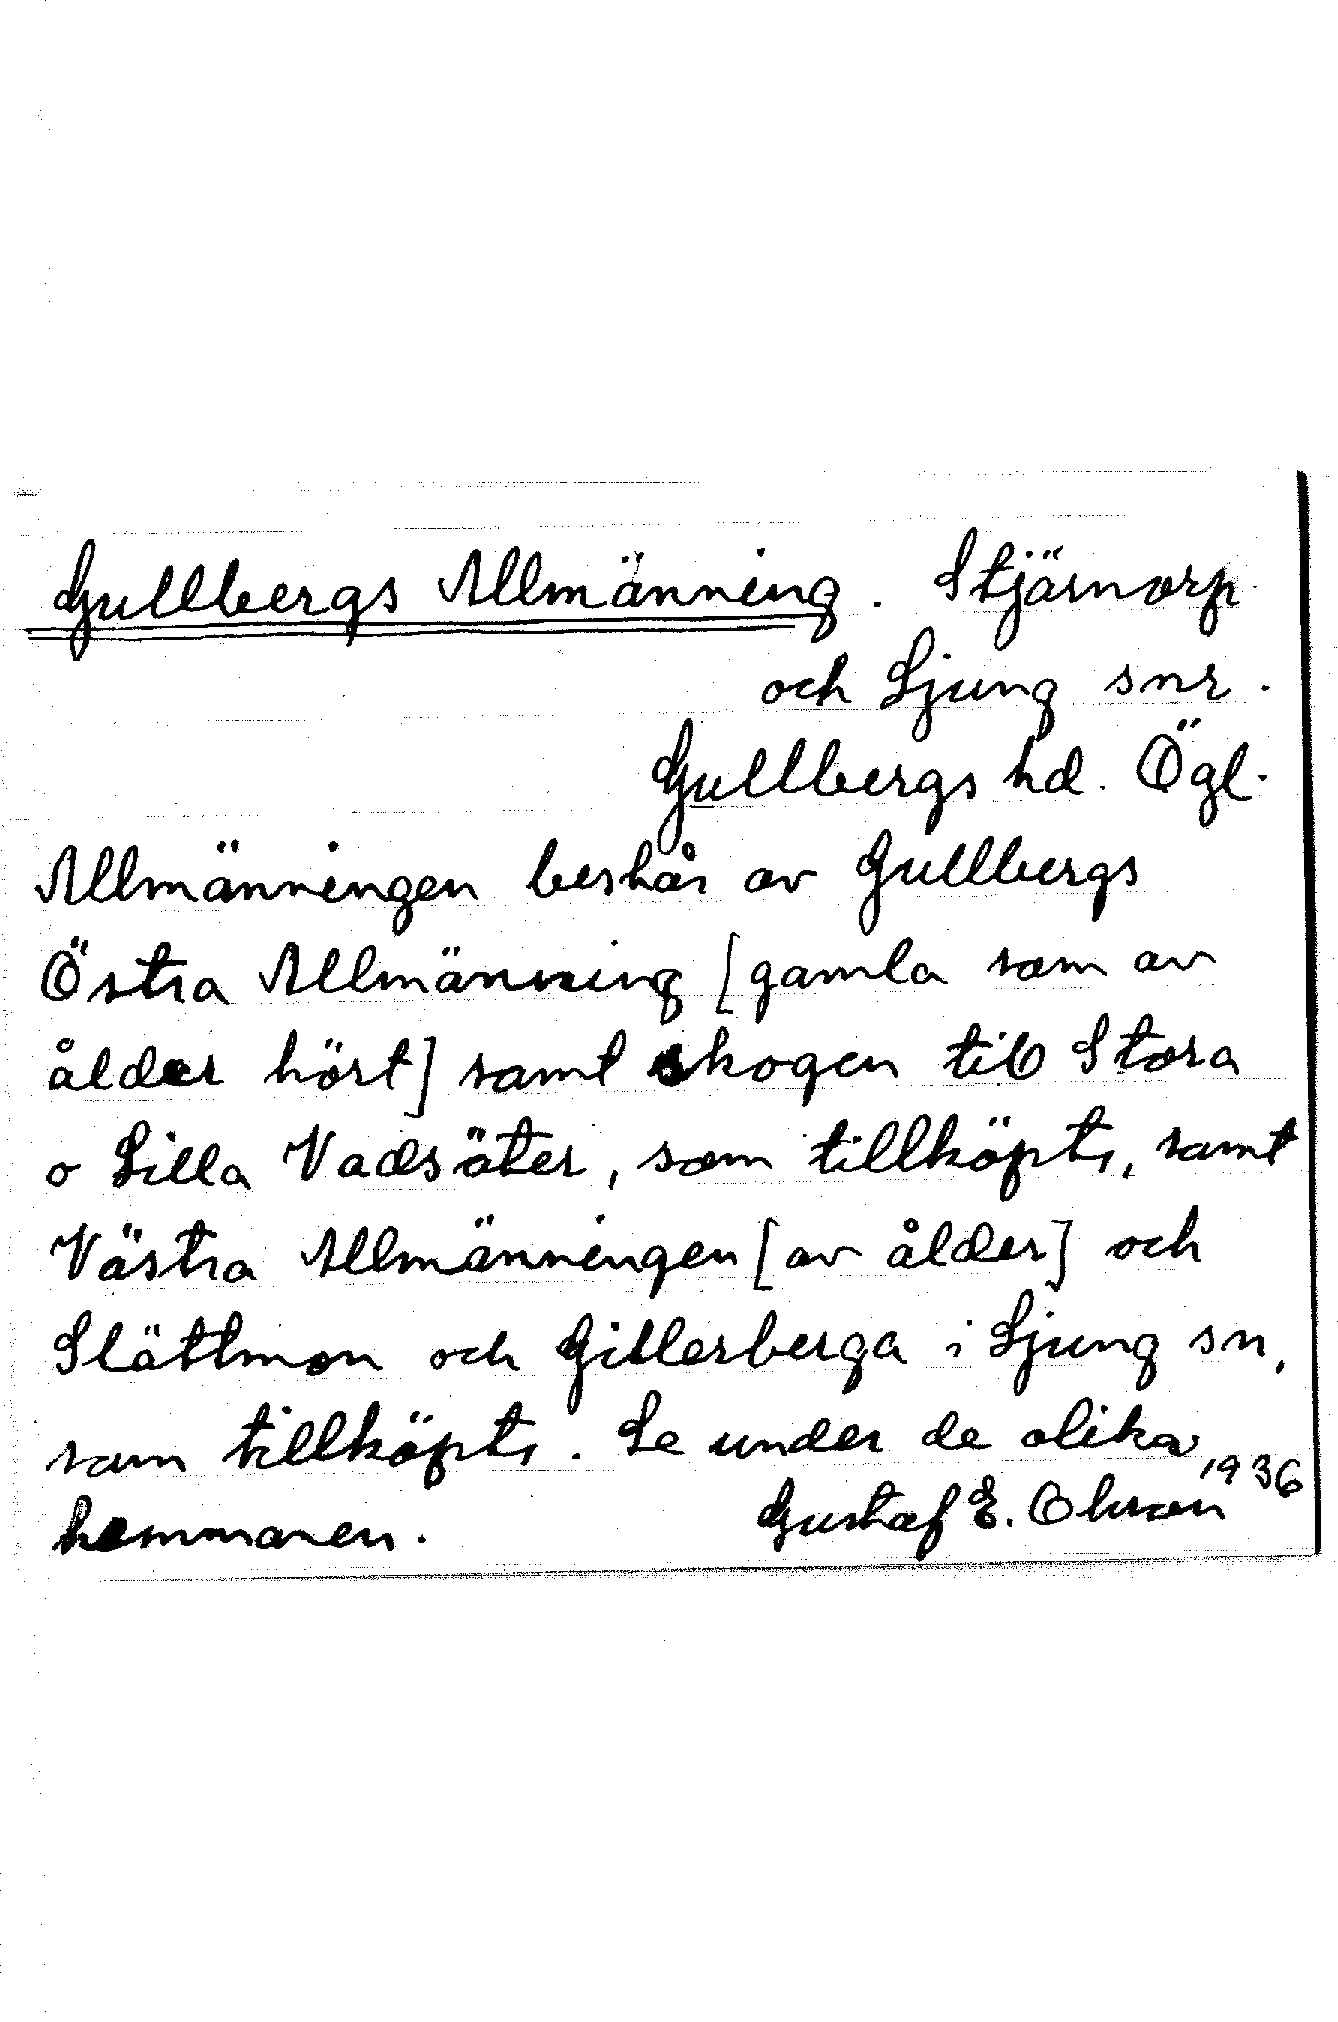 Gullbergs Allmänning. Stjärnorp
och Ljung snr.
Gullbergs hd. Ögl.
Allmänningen består av Gullbergs
Östra Allmänning [gamla som av
ålder hört] samt skogen till Stora
o Lilla Vadsäter, som tillköpts, samt
Västra Allmänningen [av ålder] och
Slättmon och Gillerberga i Ljung sn,
som tillköpts. Se under de olika
hemmanen. Gustaf E. Olsson 1936